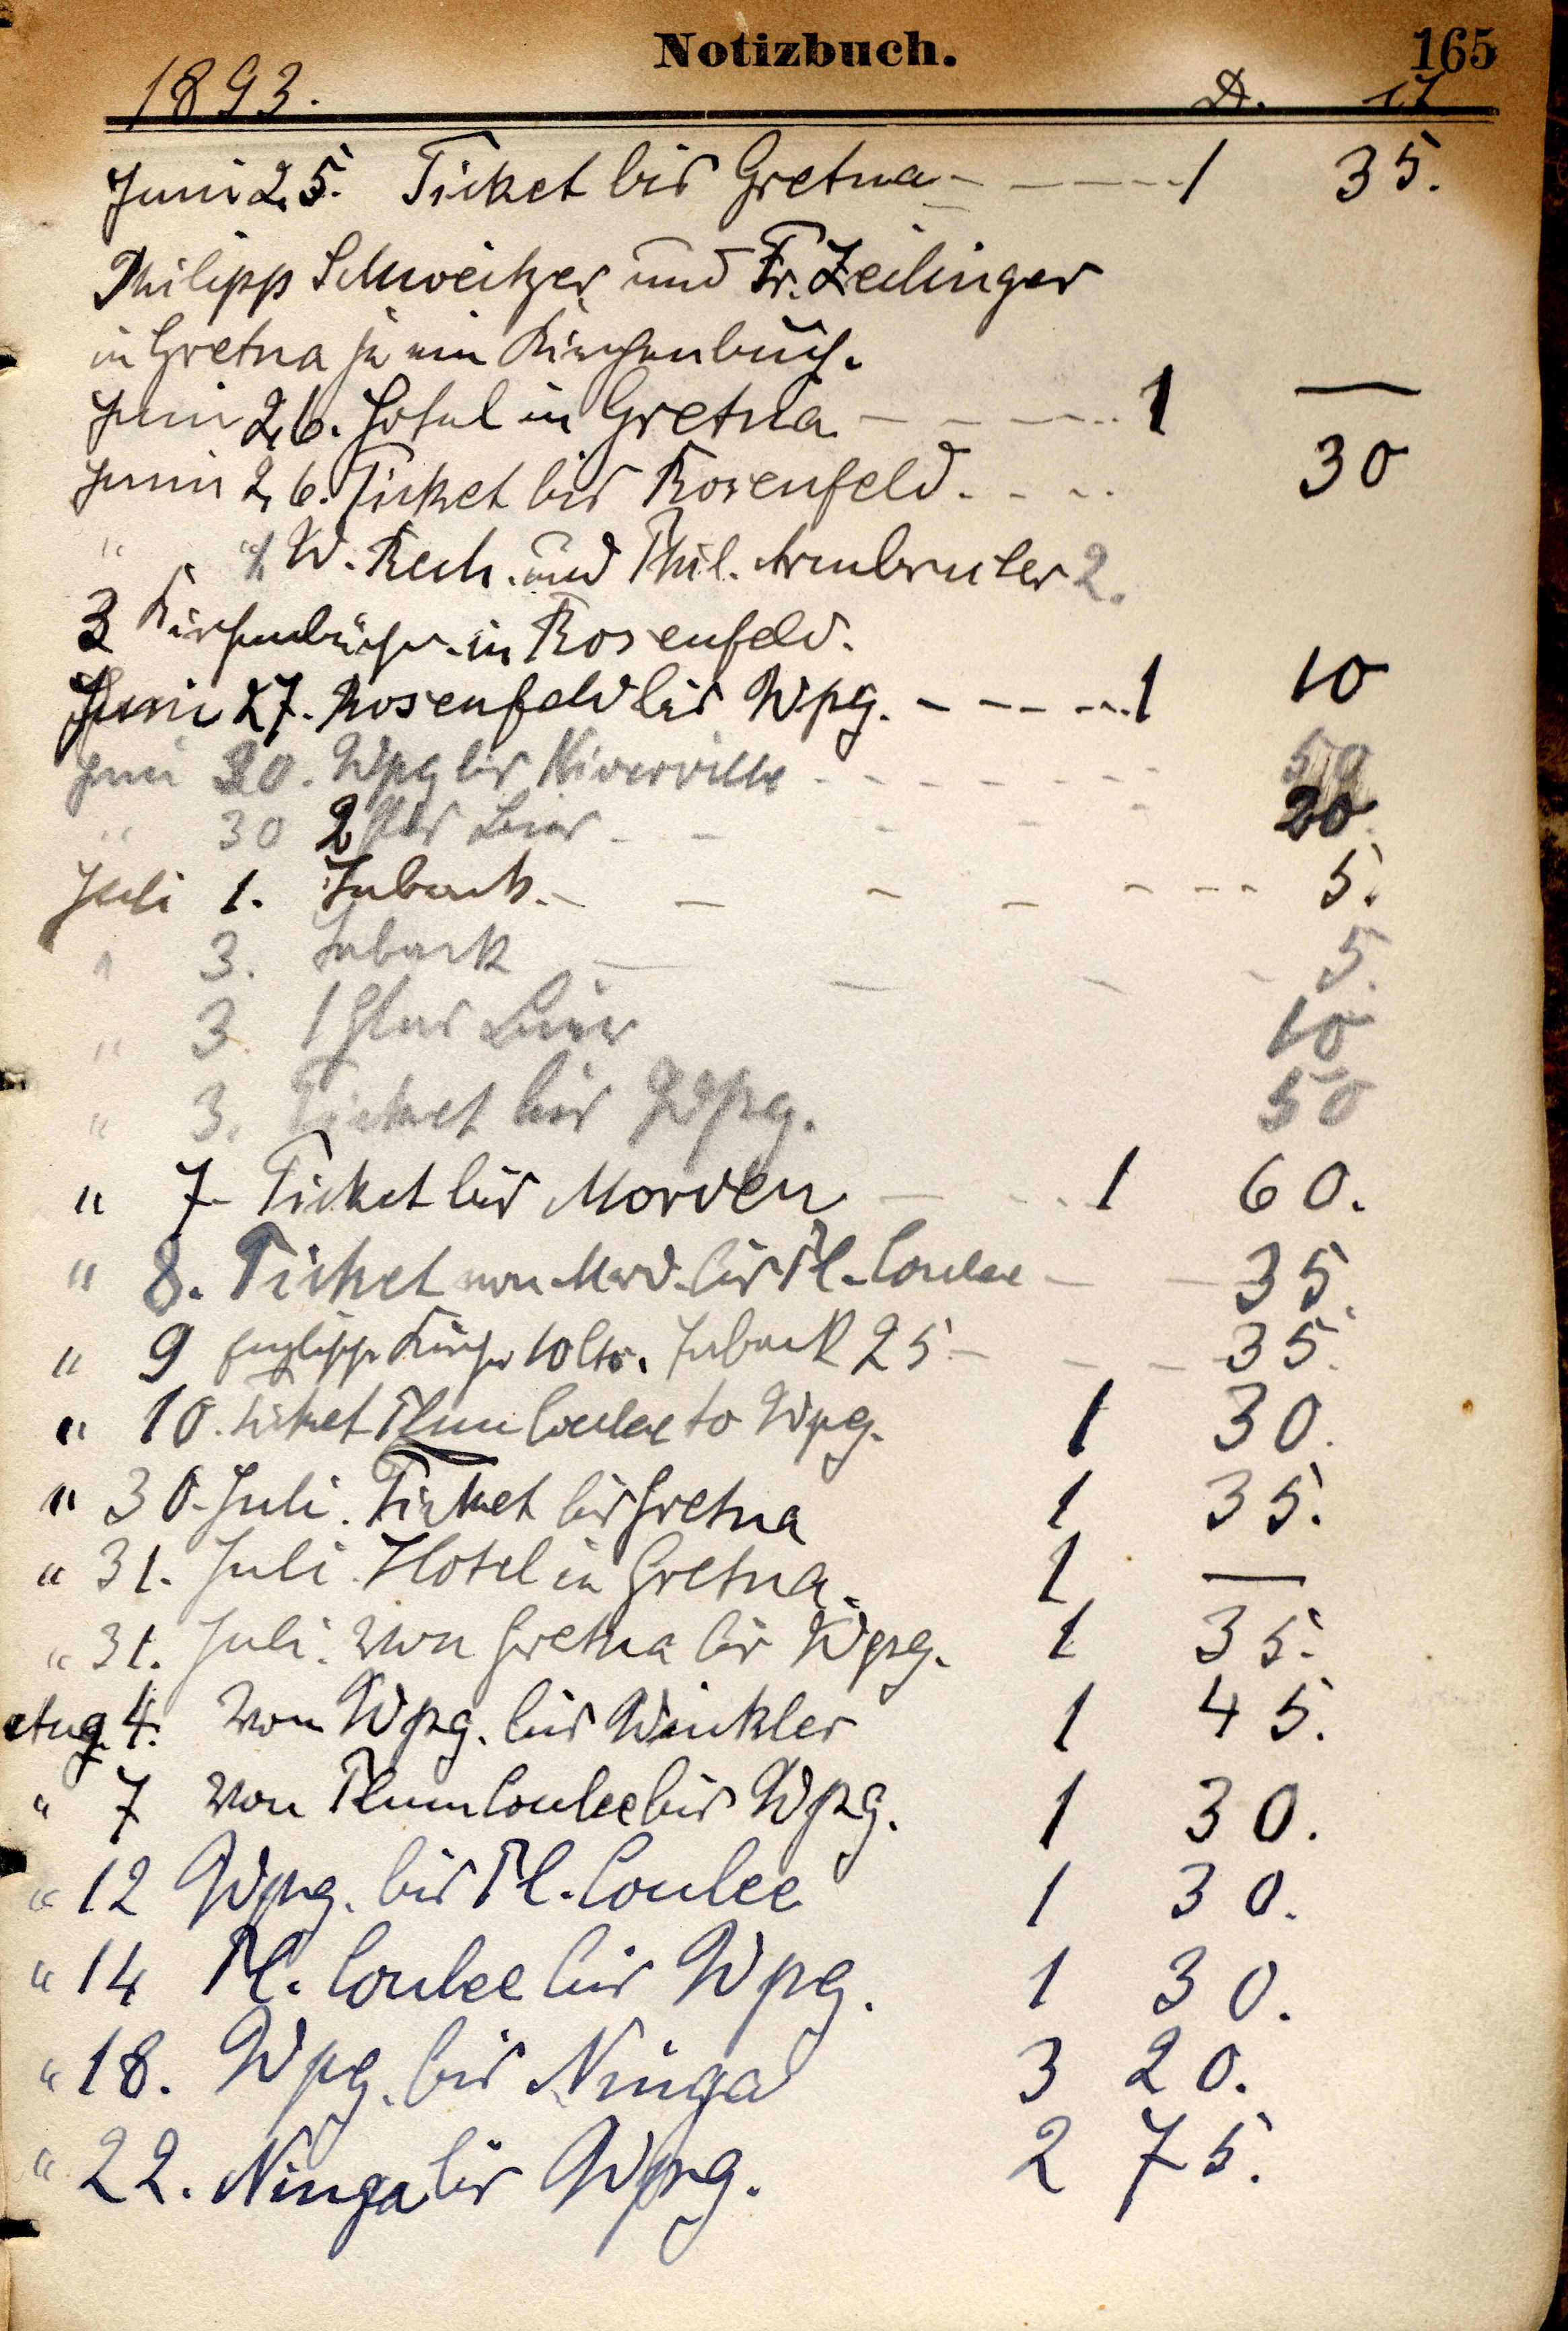 Notizbuch. 165
1893. D. ct
Juni 25. Ticket bis Gretna - - - - 1 35.
Philipp Schweitzer und Fr. Zeilinger
in Gretna je ein Kirchenbuch.
Juni 26. Hotel in Gretna - - - - 1 —
Juni 26. Ticket bis Rosenfeld. - - - 30
" " W. Rech. und Phil. Armbruster 2.
3 Kirchenbücher in Rosenfeld.
Juni 27. Rosenfeld bis Wpg. - - - - 1 10
Juni 30. Wpg bis Niverville - - - - - - - 50
" 30 2 Glas Bier - - - - - 20.
Juli 1. Taback. - - - - - - - 5.
" 3. Taback - - - - 5.
" 3. 1 Glas Bier 10
" 3. Ticket bis Wpg. 50
" 7 Ticket bis Morden - - - 1 60.
" 8. Ticket von Mord. bis Pl. Coulee - - 35.
" 9 10 cts. Taback 25 - - - 35.
" 10. Ticket Plum Coulee to Wpg. 1 30.
" 30. Juli. Ticket bis Gretna 1 35.
" 31. Juli. Hotel in Gretna. 1 —
" 31. Juli. Von Gretna bis Wpg. 1 35.
Aug. 4. Von Wpg. bis Winkler 1 45.
" 7 Von Plum Coulee bis Wpg. 1 30.
" 12 Wpg. bis Pl. Coulee 1 30.
" 14 Pl. Coulee bis Wpg. 1 30.
" 18. Wpg. bis Ninga 3 20.
" 22. Ninga bis Wpg. 2 75.